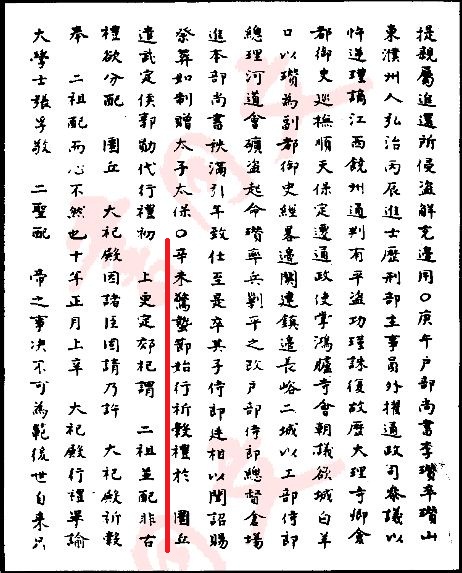 提親屬追還所侵盜解充邊用○庚午戶部尚書李瓚卒瓚山
東濮州人弘治丙辰進士歷刑部主事員外擢通政司參議以
忤逆瑾謫江西饒州通判有平盜功瑾誅復故歷大理寺卿僉
都御史巡撫順天保定遷通政使掌鴻臚寺會朝議欲城白羊
口以瓚為副都御史經畧邊關建鎮邊長峪二城以工部侍郎
總理河道會礦盜起命瓚率兵剿平之改戶部侍郎總督倉場
進本部尚書秩滿引年致仕至是卒其子侍郎廷相以聞詔賜
祭葬如制贈太子太保○辛未驚蟄節始行祈穀禮於 圜丘
遣武定侯郭勛代行禮初 上更定郊祀謂 二祖並配非古
禮欲分配 圜丘 大祀殿因諸臣固請乃許 大祀殿祈穀
奉 二祖配而心不然也十年正月上辛 大祀殿行禮畢諭
大學士張孚敬 二聖配 帝之事決不可為範後世自來只